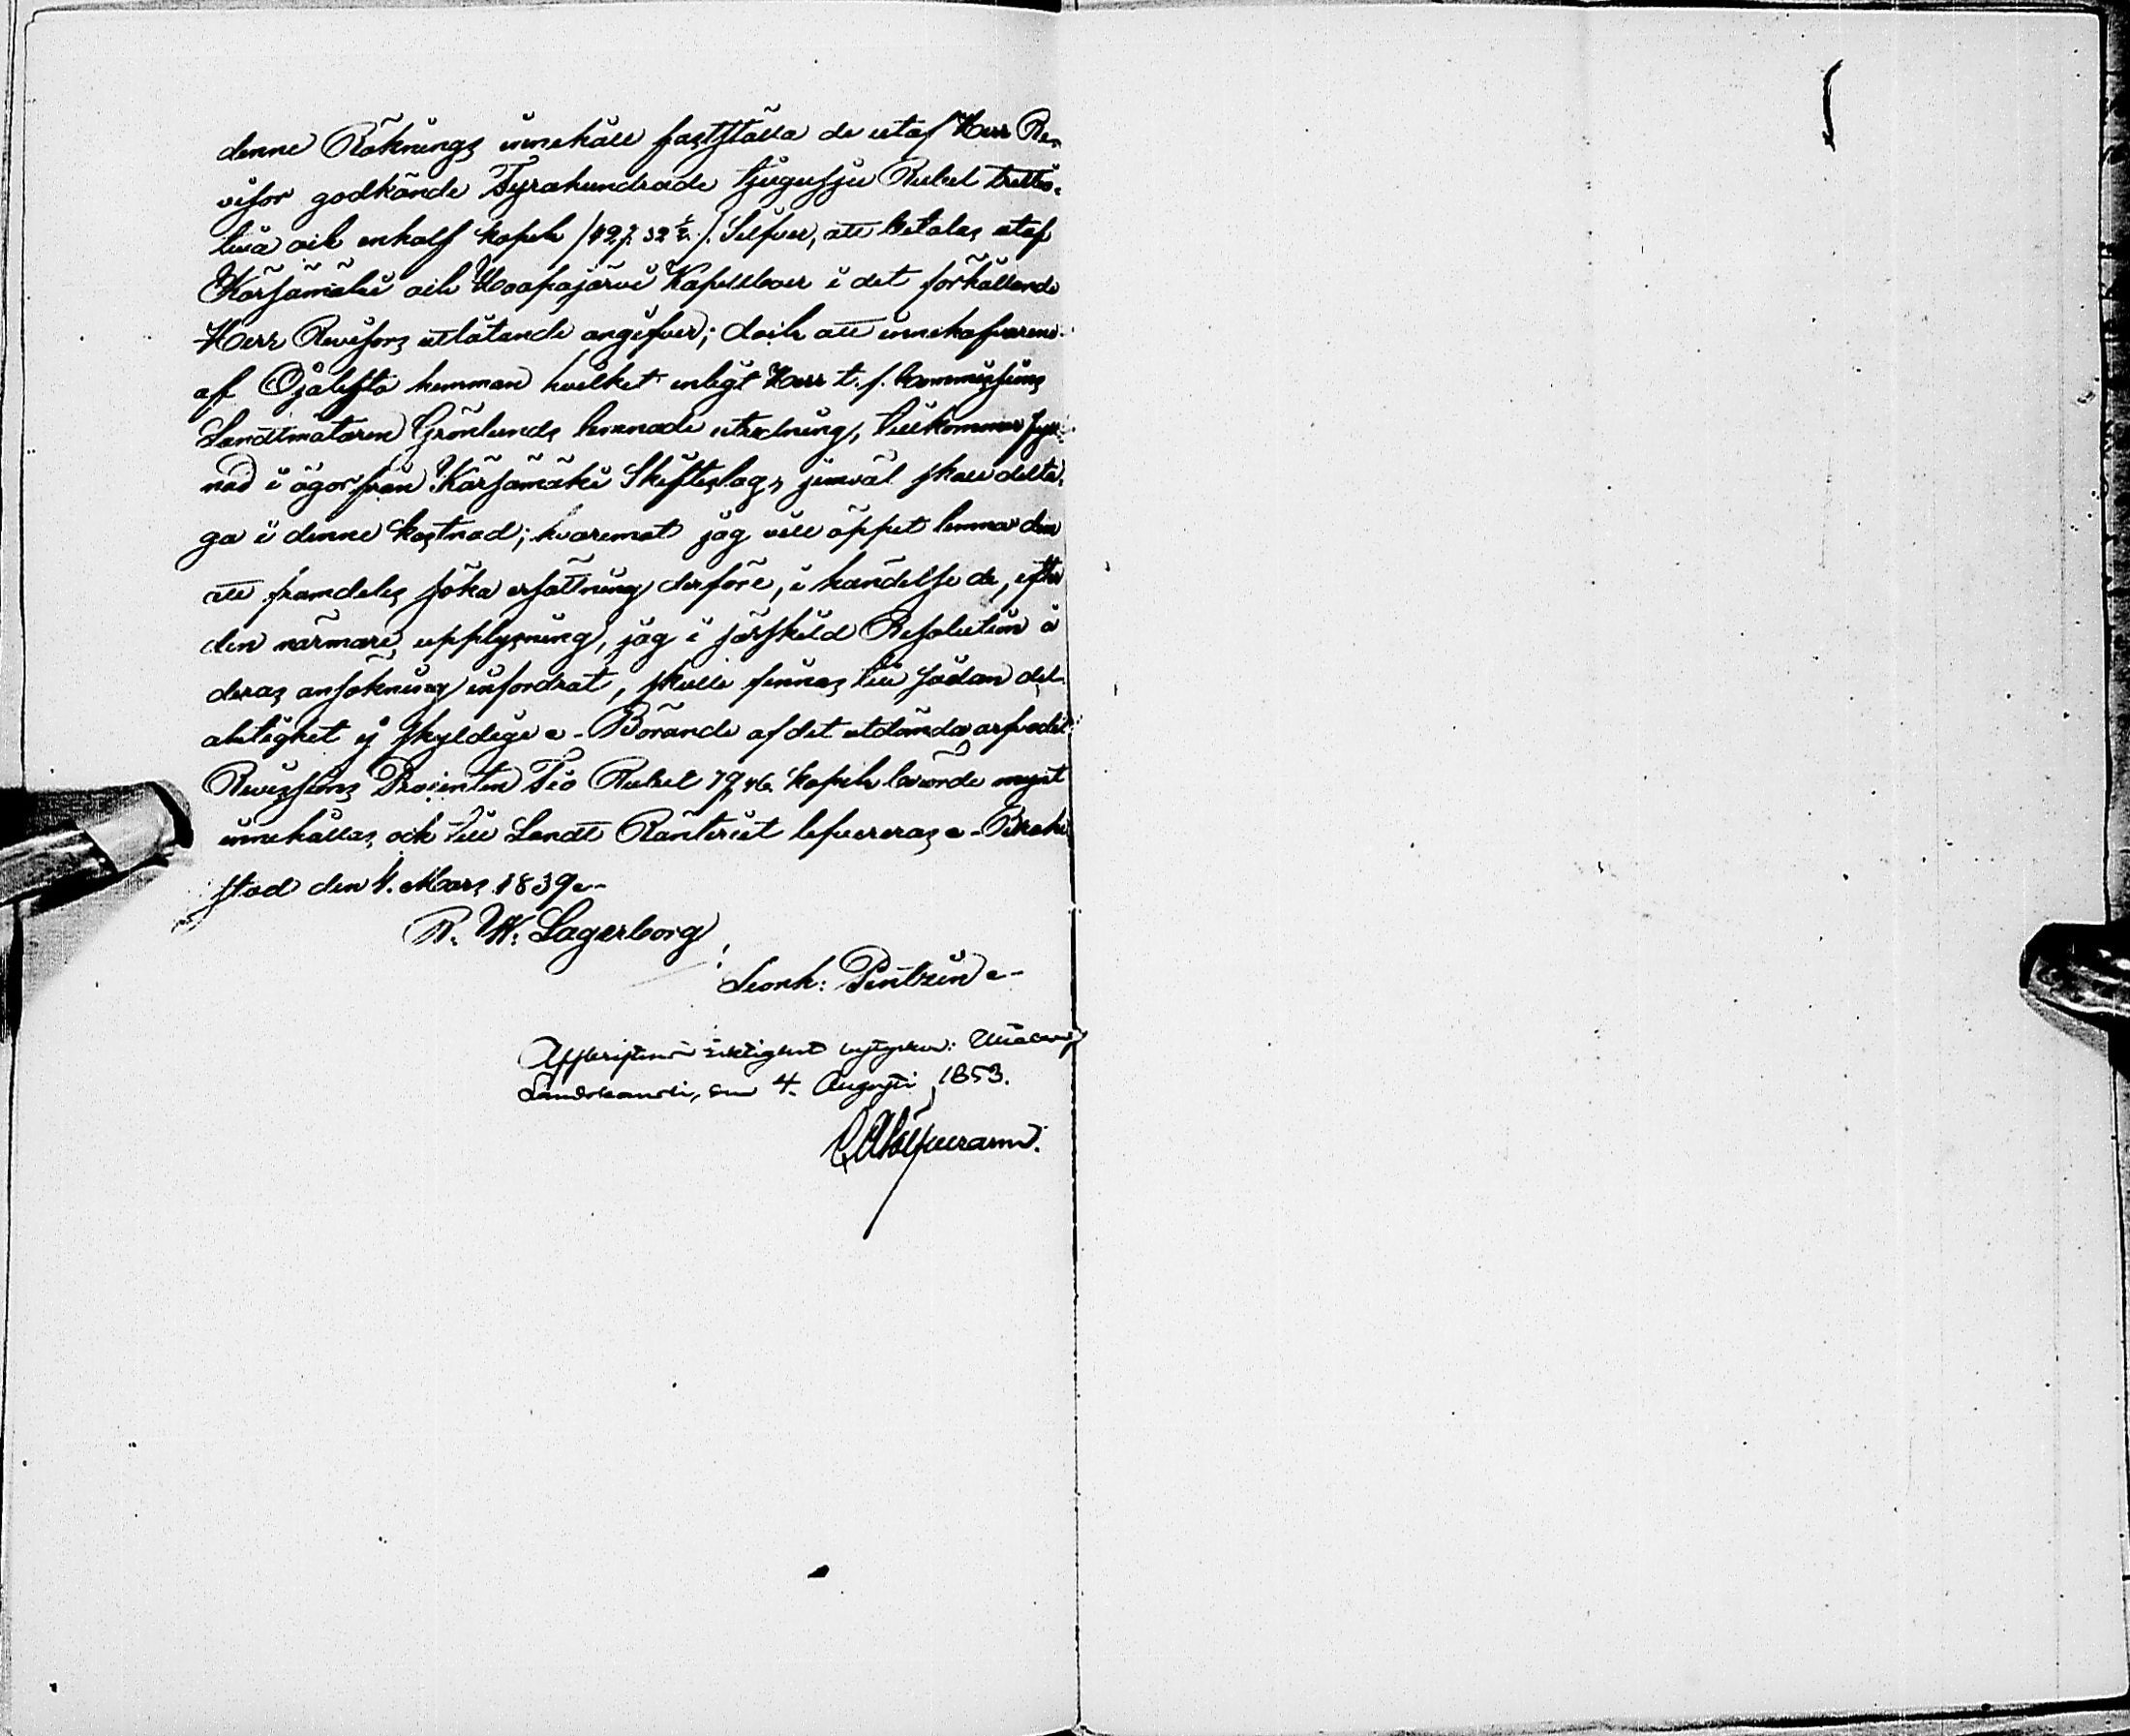 denne Räknings innehåll fastställa de utaf Herr Re-
visor godkände Fyrahundrade tjugusju Rubel trettio-
två och enhalf kopek /427. 32 1/2./. Silfver, att betalas utaf
Kärsämäki och Haapajärvi Kapellboer i det förhållande
Herr Revisors utlåtande angifver; doch att innehafvarene
af Ojalehto hemman hvilket enligt Herr t. f. Commissions
Landtmätaren Grönlunds lemnade utredning, tillkommer fyll-
nad i ägor från Kärsämäki Skifteslag, jemväl skall delta-
ga i denne kostnad; hvaremot jag vill öppet lemna dem
att framdeles söka ersättning derföre, i händelse de, efter
den närmare upplysning, jag i särskild Resolution å
deras ansökning infordrat, skulle finnas till sådan del-
aktighet ej skyldige. Börande af det utdömda arfvodet
Revisions Procenten Tio Rubel 79,46 kopek berörde mynt
innehållas, och till Landt Ränteriet lefvereras. Brahe-
stad den 4. Mars 1839.
R. W. Lagerborg
Leonh: Pentzin
Afskriftens riktighet betygar: Uleåborgs
Landskansli, den 4. Augusti 1853.